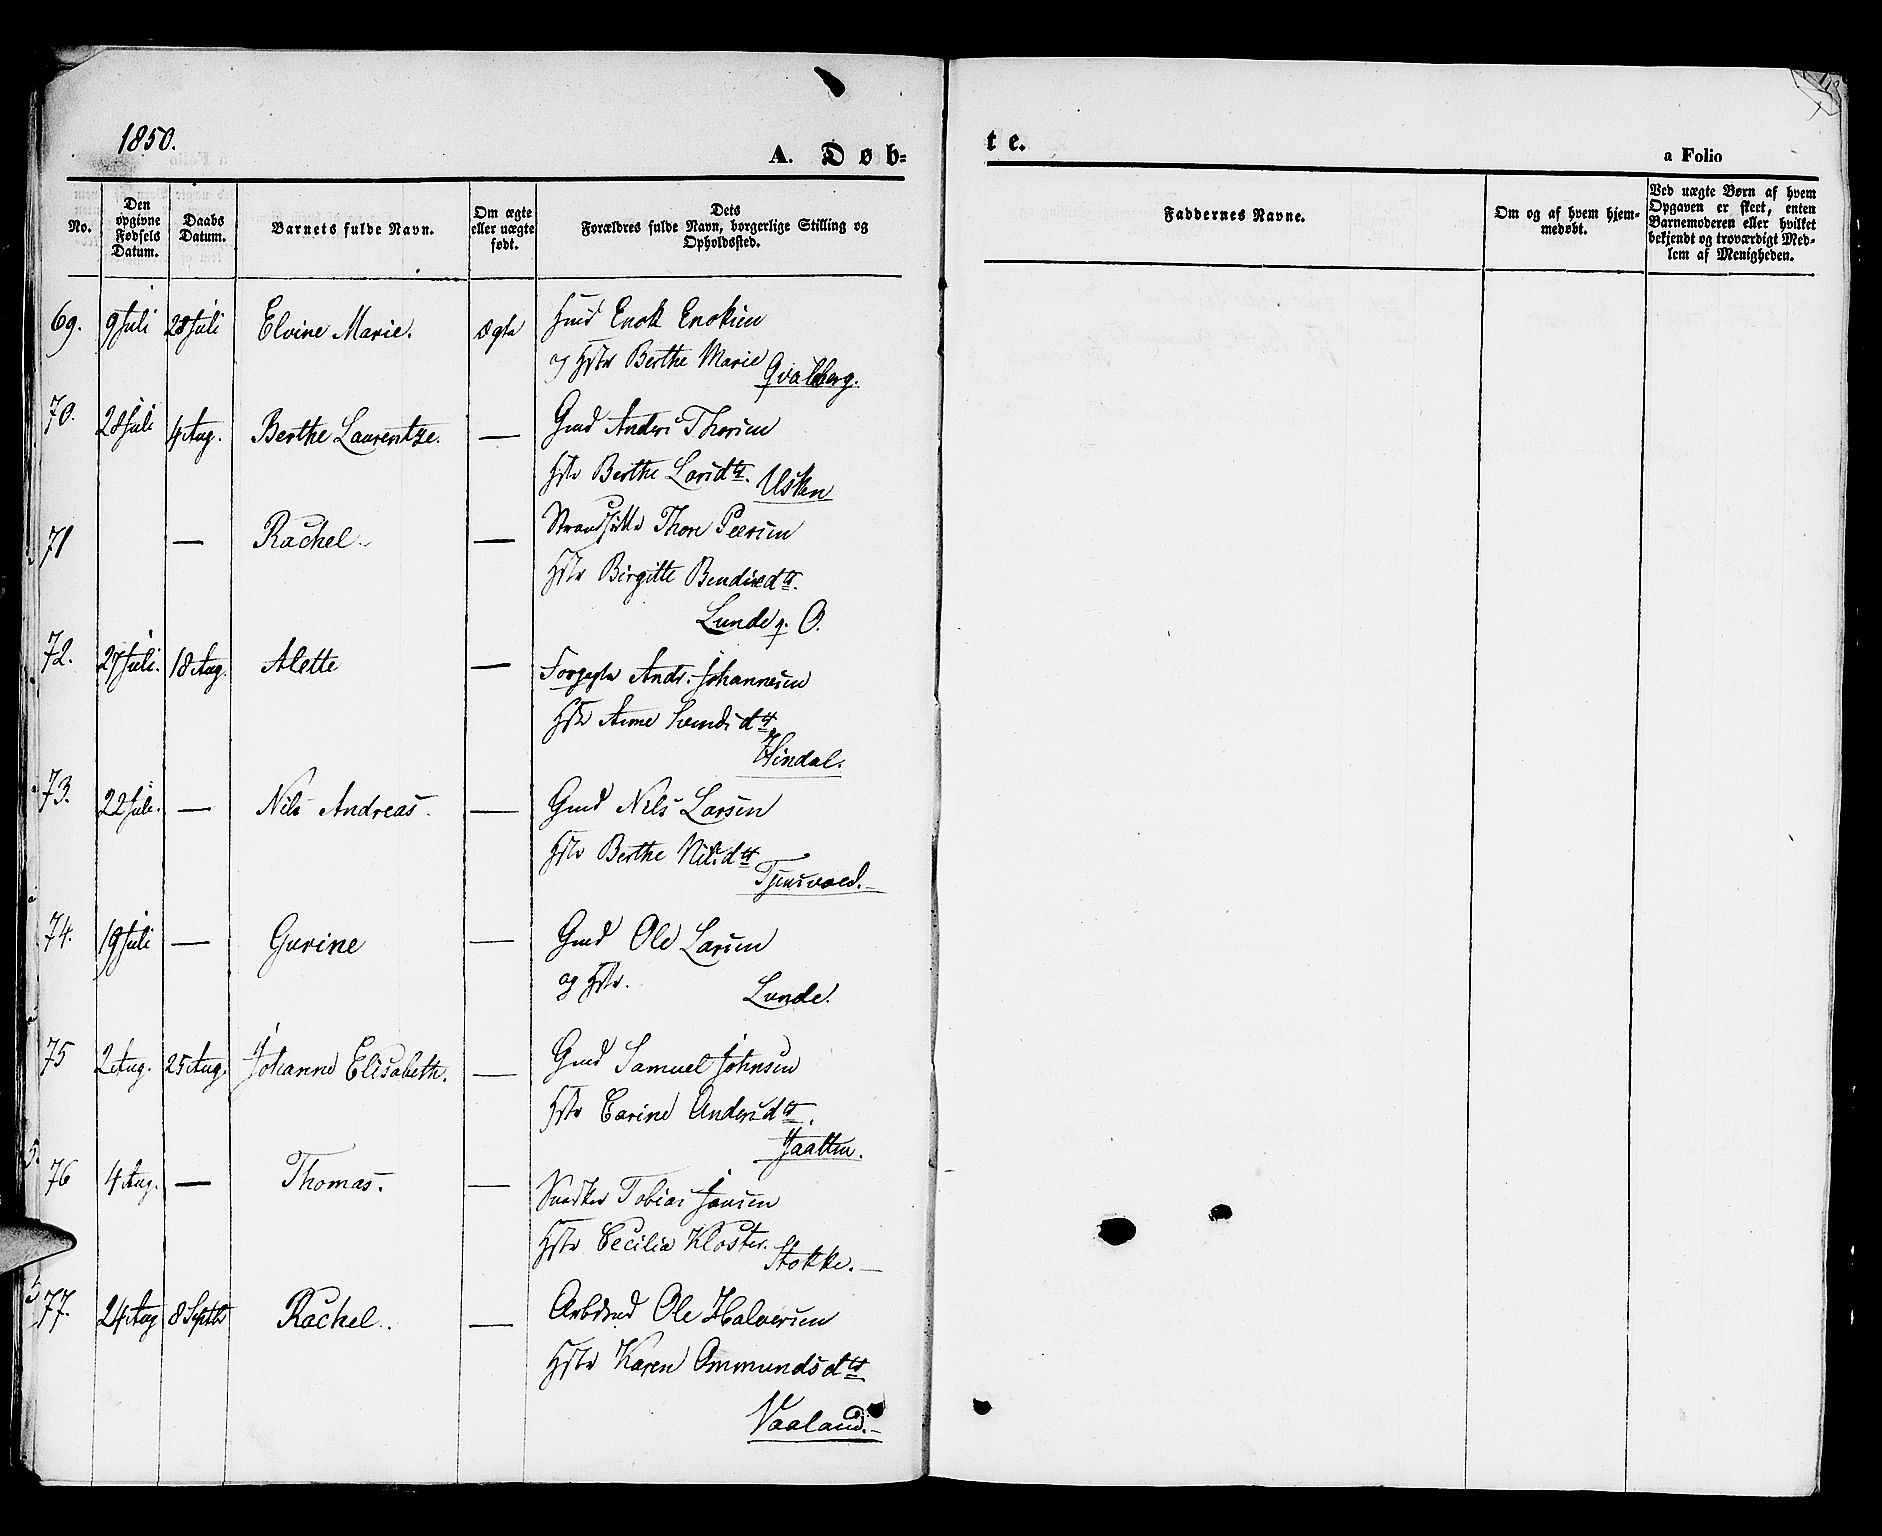 1850.
A. Døb-
te.
a Folio
No.
Den opgivne Fødsels Datum.
Daabs Datum.
Barnets fulde Navn.
Om ægte eller uægte født.
Dets Forældres fulde Navn, borgerlige Stilling og Opholdssted.
Faddernes Navne.
Om og af hvem hjem-
medøbt.
Ved uægte Børn af hvem
Opgaven er skeet, enten
Barnemoderen eller hvilket
bekjendt og troværdigt Med-
lem af Menigheden.
69. 9 Juli 28 Juli Elvine Marie. Ægte Enok Enoksen
og Hstr Berthe Marie
Qvalberg.
70. 28 Juli 4 Aug. Berthe Laurentze. — Gmd Anders Thorsen
Hstr Berthe Larsdtr.
Usken
71 — Rachel. — Thore Peersen
Hstr Birgitte Bendixdtr.
Lunde g. O.
72. 27 Juli. 18 Aug. Alette — Andr. Johannesen
Hstr Anne Svendsdtr
Hindal.
73. 22 Juli. — Nils Andreas. — Gmd Nels Larsen
Hstr Berthe Nilsdtr
Tjensvold.
74. 19 Juli — Gurine — Gmd Ole Larsen
og Hstr.
Lunde.
75 2 Aug. 25 Aug. Johanne Elisabeth. — Gmd Samuel Johnsen
Hstr Carine Andersdtr.
Jaatten.
76 4 Aug. — Thomas. — Snedker Tobias Jansen
Hstr Cecilia Kloster.
Stokke. —
77. 24 Aug 8 Septbr Rachel. — Arbdmd Ole Halvorsen
Hstr Karen Ommundsdtr
Vaaland. —